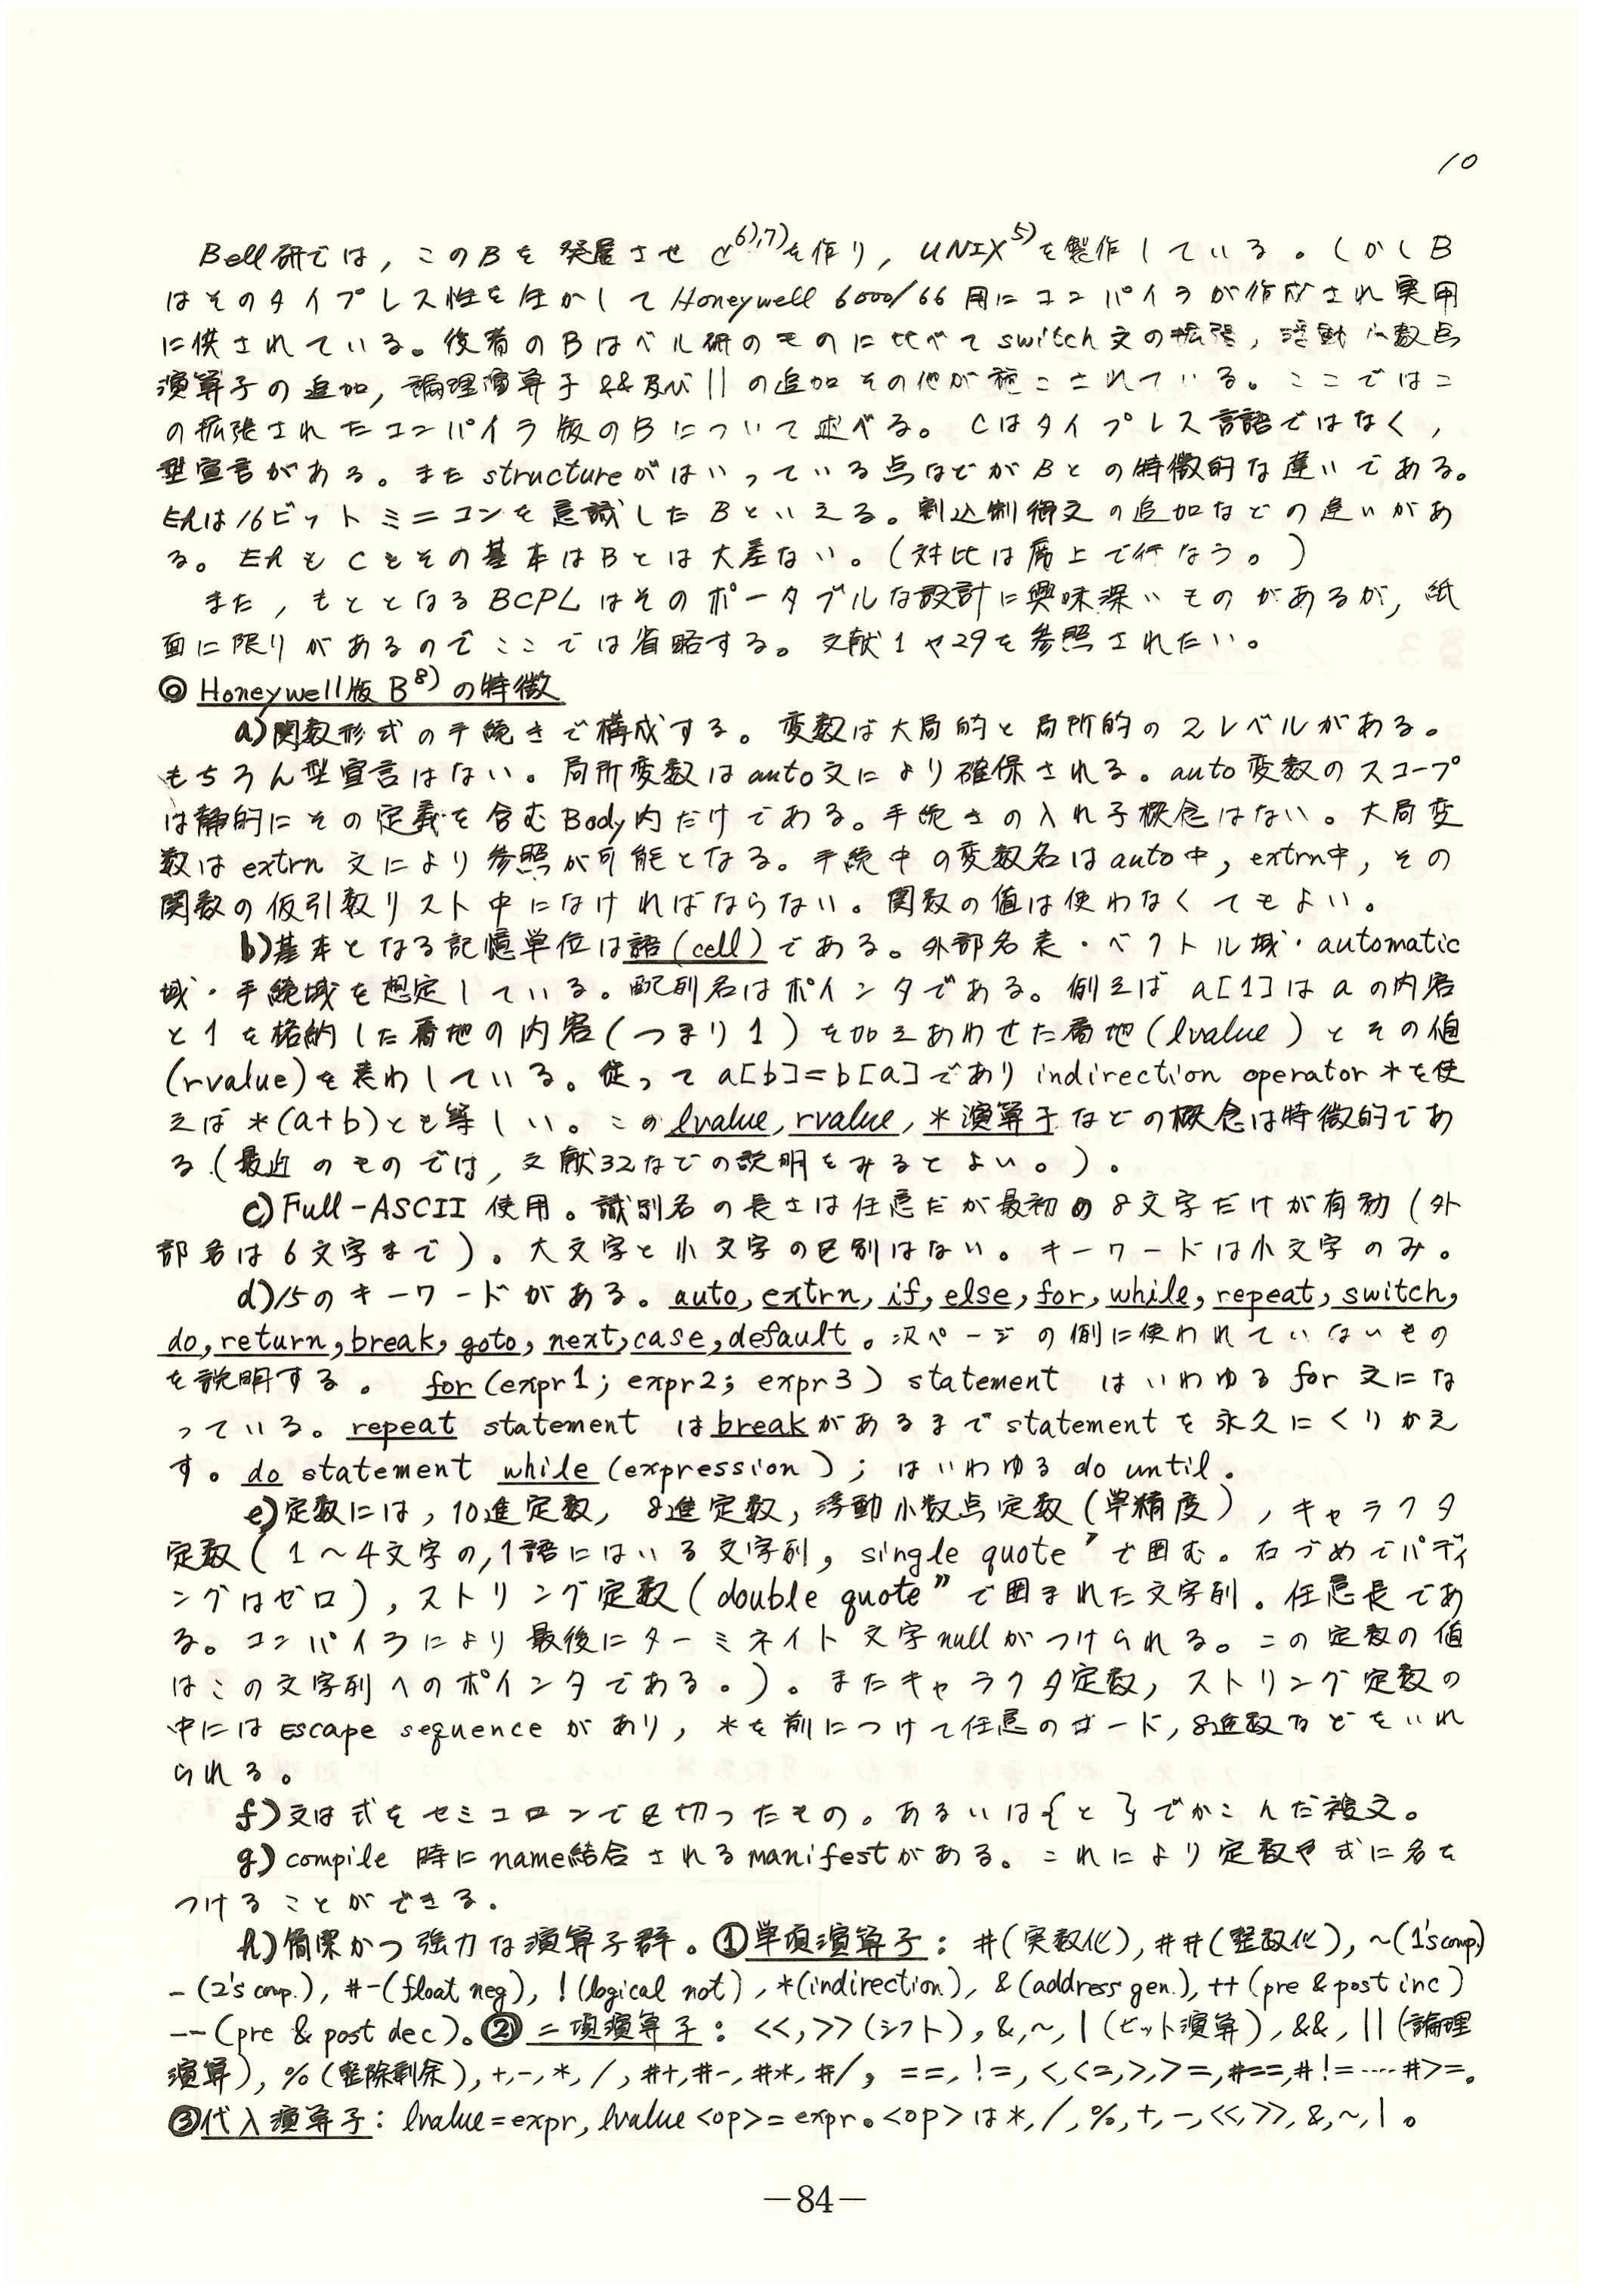 10
Bell研では，このBを発展させC6),7)を作り，UNIX5)を製作している。しかしB
はそのタイプレス性を生かしてHoneywell 6000/66用にコンパイラが作成され実用
に供されている。後者のBはベル研のものに比べてswitch文の拡張，浮動小数点
演算子の追加，論理演算子&&及び||の追加その他が施こされている。ここではこ
の拡張されたコンパイラ版のBについて述べる。Cはタイプレス言語ではなく，
型宣言がある。またstructureがはいっている点などがBとの特徴的な違いである。
Ehは16ビットミニコンを意識したBといえる。割込制御文の追加などの違いがあ
る。EhもCもその基本はBとは大差ない。(対比は席上で行なう。)
また，もととなるBCPLはそのポータブルな設計に興味深いものがあるが，紙
面に限りがあるのでここでは省略する。文献1や29を参照されたい。
◎ Honeywell版B8)の特徴
a)関数形式の手続きで構成する。変数は大局的と局所的の2レベルがある。
もちろん型宣言はない。局所変数はauto文により確保される。auto変数のスコープ
は静的にその定義を含むBody内だけである。手続きの入れ子概念はない。大局変
数はextrn文により参照が可能となる。手続中の変数名はauto中，extrn中，その
関数の仮引数リスト中になければならない。関数の値は使わなくてもよい。
b)基本となる記憶単位は語(cell)である。外部名表・ベクトル域・automatic
域・手続域を想定している。配列名はポインタである。例えば a[1]はaの内容
と1を格納した番地の内容(つまり1)を加えあわせた番地(lvalue)とその値
(rvalue)を表わしている。従ってa[b]=b[a]でありindirection operator *を使
えば *(a+b)とも等しい。このlvalue, rvalue, *演算子などの概念は特徴的であ
る(最近のものでは，文献32などの説明をみるとよい。)。
c)Full-ASCII 使用。識別名の長さは任意だが最初の8文字だけが有効(外
部名は6文字まで)。大文字と小文字の区別はない。キーワードは小文字のみ。
d)15のキーワードがある。auto, extrn, if, else, for, while, repeat, switch,
do, return, break, goto, next, case, default。次ページの例に使われていないもの
を説明する。 for (expr1; expr2; expr3) statement はいわゆる for 文にな
っている。repeat statement はbreakがあるまでstatementを永久にくりかえ
す。do statement while (expression); はいわゆる do until.
e)定数には，10進定数，8進定数，浮動小数点定数(単精度)，キャラクタ
定数(1〜4文字の，1語にはいる文字列，single quote ' で囲む。右づめでパディ
ングはゼロ)，ストリング定数(double quote " で囲まれた文字列。任意長であ
る。コンパイラにより最後にターミネイト文字nullがつけられる。この定数の値
はこの文字列へのポインタである。)。またキャラクタ定数，ストリング定数の
中にはEscape sequenceがあり，*を前につけて任意のコード，8進数などをいれ
られる。
f)文は式をセミコロンで区切ったもの。あるいは{と}でかこんだ複文。
g) compile 時にname結合されるmanifestがある。これにより定数や式に名を
つけることができる。
h)簡潔かつ強力な演算子群。①単項演算子: #(実数化), ##(整数化), ~(1's comp.)
-(2's comp.), #-(float neg), !(logical not), *(indirection), &(address gen.), ++(pre & post inc)
--(pre & post dec)。②二項演算子: <<,>>(シフト), &,~,|(ビット演算), &&,||(論理
演算), %(整除剰余), +,-,*,/,#+,#-,#*,#/, ==,!=,<,<=,>,>=,#==,#!=----#>=。
③代入演算子: lvalue=expr, lvalue <op>= expr。<op>は*,/,%,+,-,<<,>>,&,~,|。
—84—